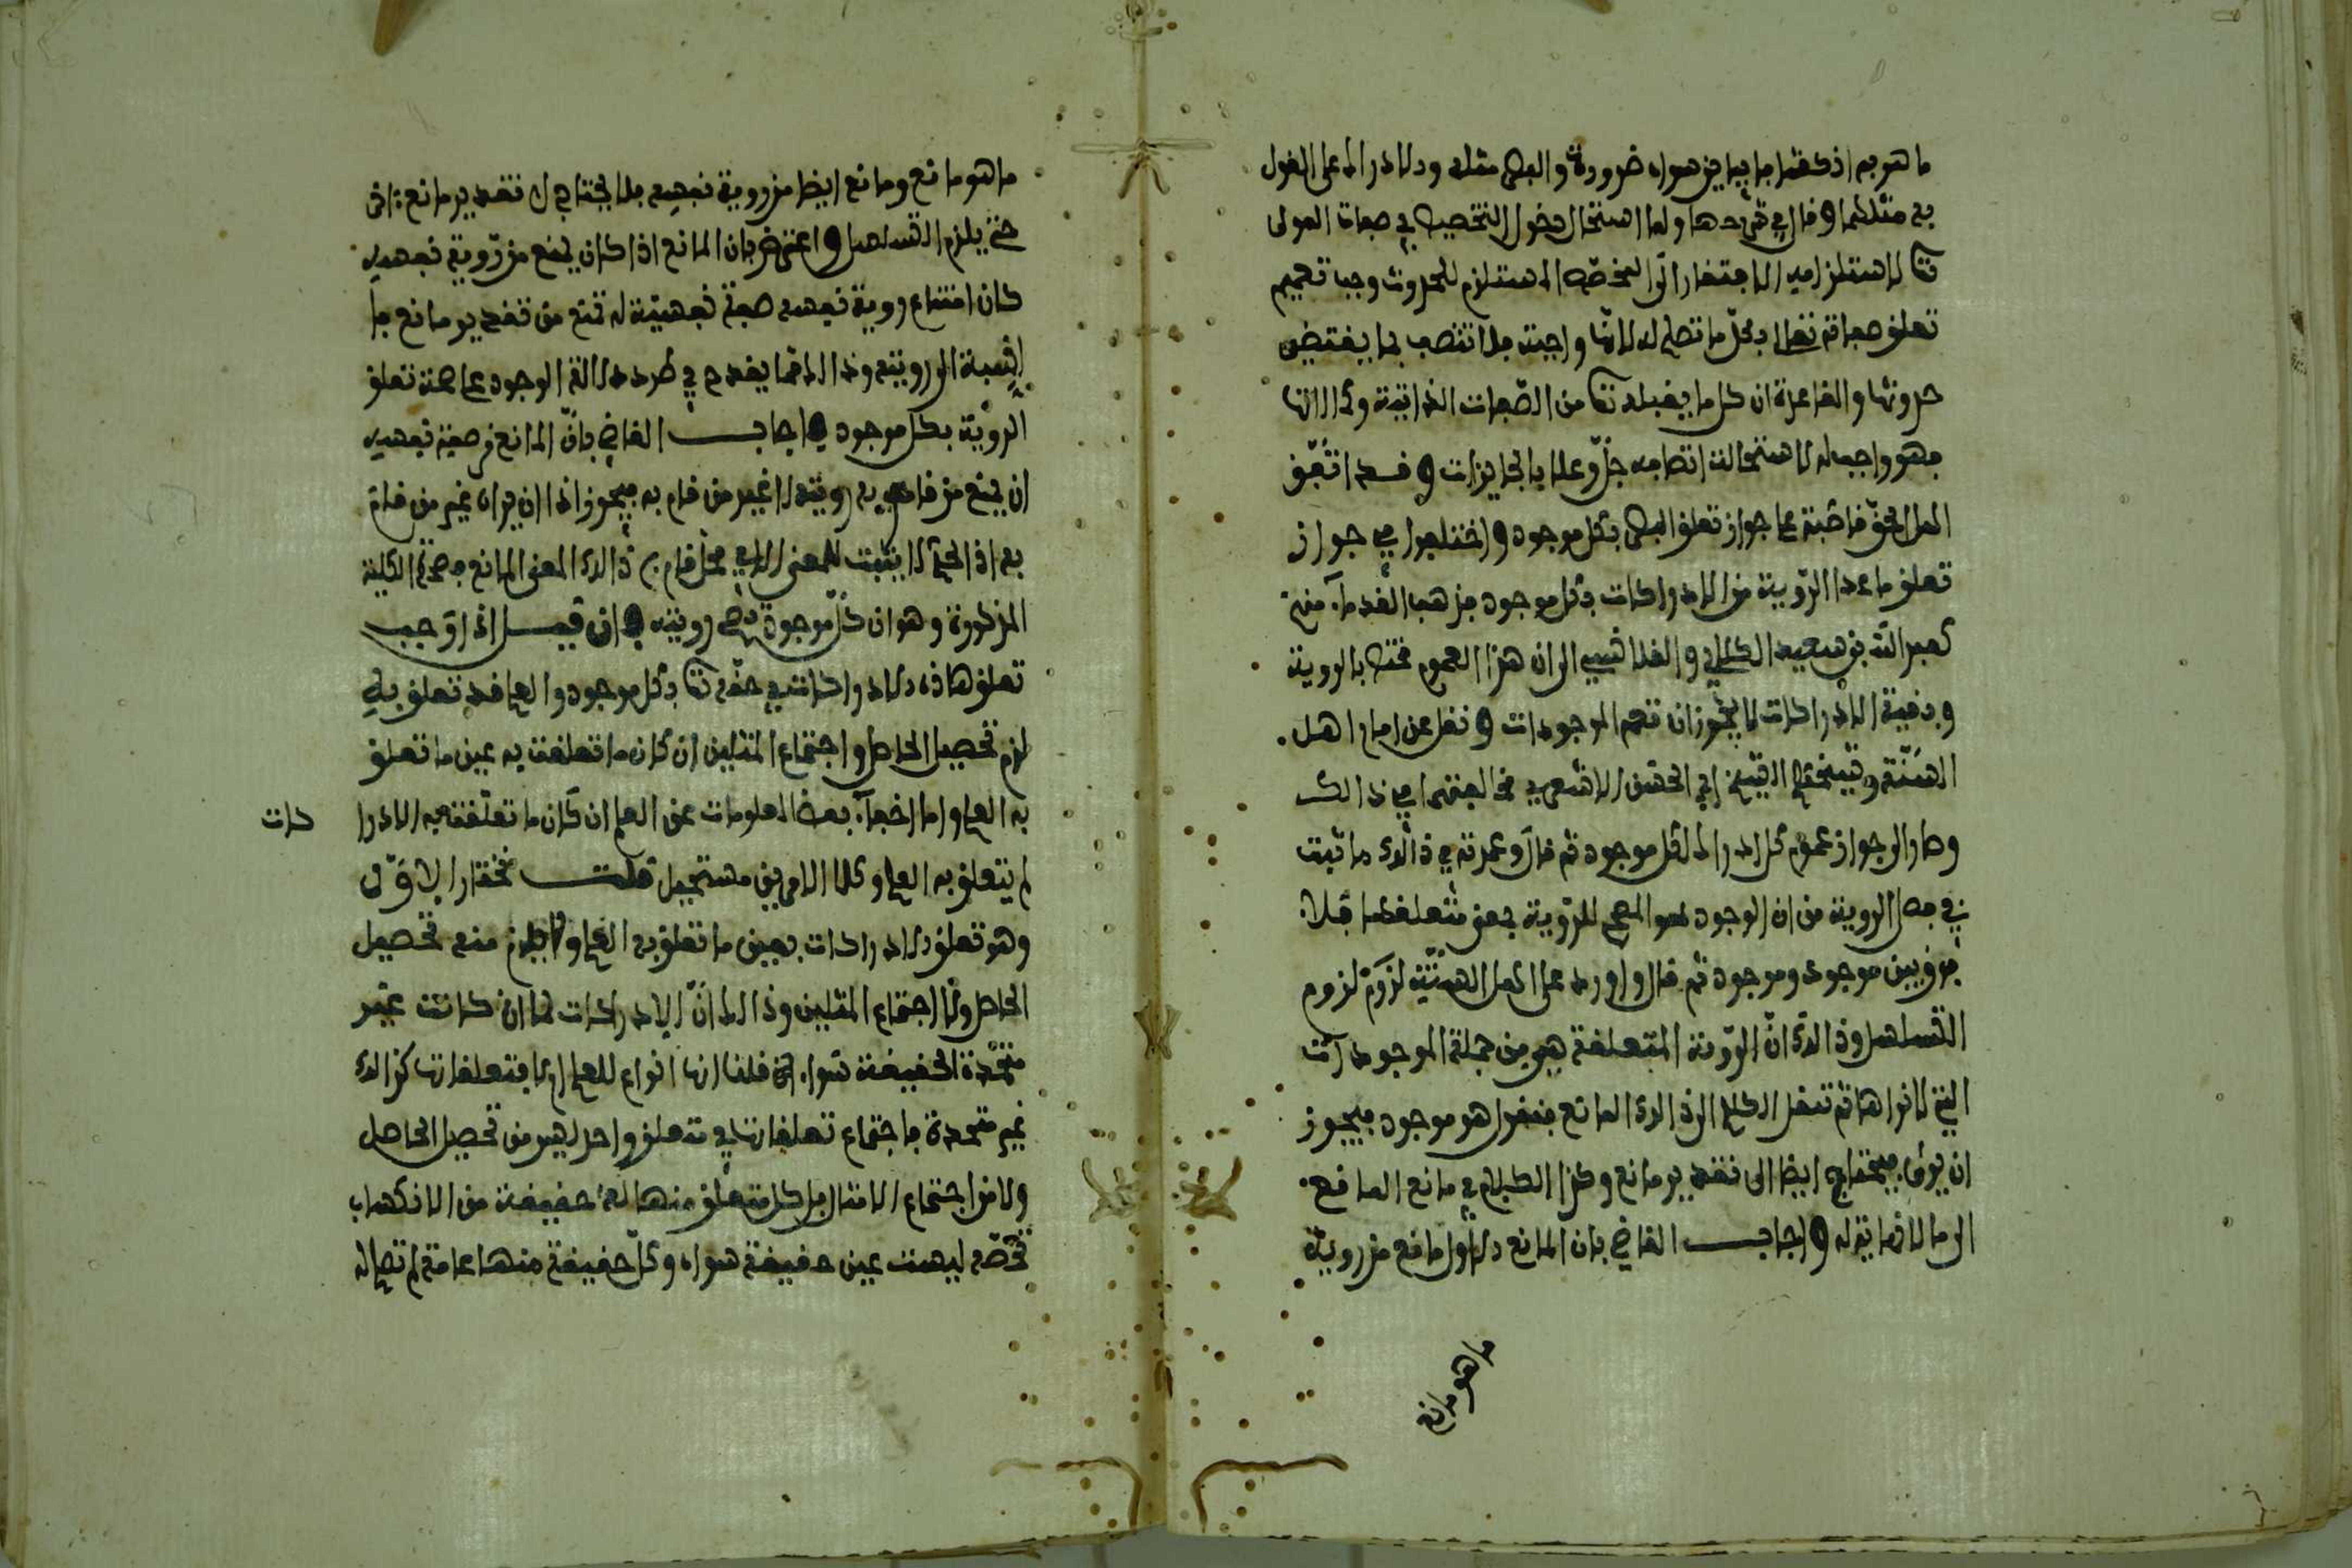 ما هو به اذ كفتها ما يباين سواه ضرورة والبصر مثله ودلادراك على القول
به مثلهما وقال في شرحها ولما استحال دخول التخصيص في صفات المولى
تعا لاستلزامه الاجتفار الى المخصص المستلزم للحدوث وجب تعميم
تعلق صفاته تعالى بكل ما تصلح له لانها واجبة فلا تتصف بما يقتضي
حدوثها والقاعدة ان كل ما يقبله تعا من الصفات الذاتية وكمالاتها
فهو واجب له لاستحالة اتصافه جل وعلا بالجايزات وقد اتفق
اهل الحق قاطبة على جواز تعلق البصر بكل موجود واختلفوا في جواز
تعلق ما عدا الروية من الادراكات بكل موجود فذهب القدماء منهم
كعبد الله بن سعيد الكلابي والقلانسي الى ان هذا العموم مختص بالروية
وبقية الادراكات لا يجوز ان تعم الموجودات ونقل عن امام اهل
السنة وشيخها الشيخ ابي الحسن الاشعري مخالفتهما في ذالك
وصار الى جواز عموم كل ادراك لكل موجود ثم قال وعمدته في ذالك ما ثبت
في فصل الروية من ان الوجود هو المصحح للروية بمعنى متعلقها فلا
فرق بين موجود وموجود ثم قال واورد على اهل السنية لزوم
التسلسل وذالك ان الروية المتعلقة هي من جملة الموجودات
التي لا نراها ثم ننقل الكلام الى ذالك المانع فنقول هو موجود فيجوز
ان يرى فيحتاج ايضا الى تقدير مانع وكذا الكلام في مانع المانع
الى ما لا نهاية له واجاب القاضي بان المانع دلاول مانع من روية
ما هو مانع
ما هو مانع ومانع ايضا من روية نفسه فلا يحتاج الى تقدير مانع ثانى
حتى يلزم التسلسل واعترض بان المانع اذا كان يمنع من روية نفسه
كان امتناع روية نفسه صفة نفسية له تمنع من تقدير مانع ما
بالنسبة الى رويته وذالك مما يقدح في طرد دلالة الوجود على صحة تعلق
الروية بكل موجود واجاب القاضي بان المانع من صفة نفسه
ان يمنع من قام به رويته لا غير من قام به فيجوز اذا ان يراه غير من قام
به اذ الحكم لا يثبت للمعنى الا في محل قام به ذالك المعنى المانع فصدق الكلية
المذكورة وهو ان كل موجود تصح رويته وان قيل اذا اوجب
تعلق هاذه دلادراكات في حقه تعا بكل موجود والعلم قد تعلق به
لزم تحصيل الحاصل واجتماع المثلين ان كان ما تعلقت به عين ما تعلق
به العلم واما اخفاء بعض المعلومات عن العلم ان كان ما تعلقت به الادرا كات
لم يتعلق به العلم وكلا الامرين مستحيل قلت نختار الاول
وهو تعلق دلادراكات بعين ما تعلق به العلم ولا يلزم منه تحصيل
الحاصل ولا اجتماع المثلين وذالك ان الادراكات لما ان كانت غير
متحدة الحقيقة سواء قلنا انها انواع للعلم ام لا فتعلقاتها كذالك
غير متحدة فاجتماع تعلقاتها في متعلق واحد ليس من تحصيل الحاصل
ولا من اجتماع الامثال بل كل متعلق منها له حقيقة من الانكشاف
تخصه ليست عين حقيقة سواه وكل حقيقة منها عامة لم تصل له